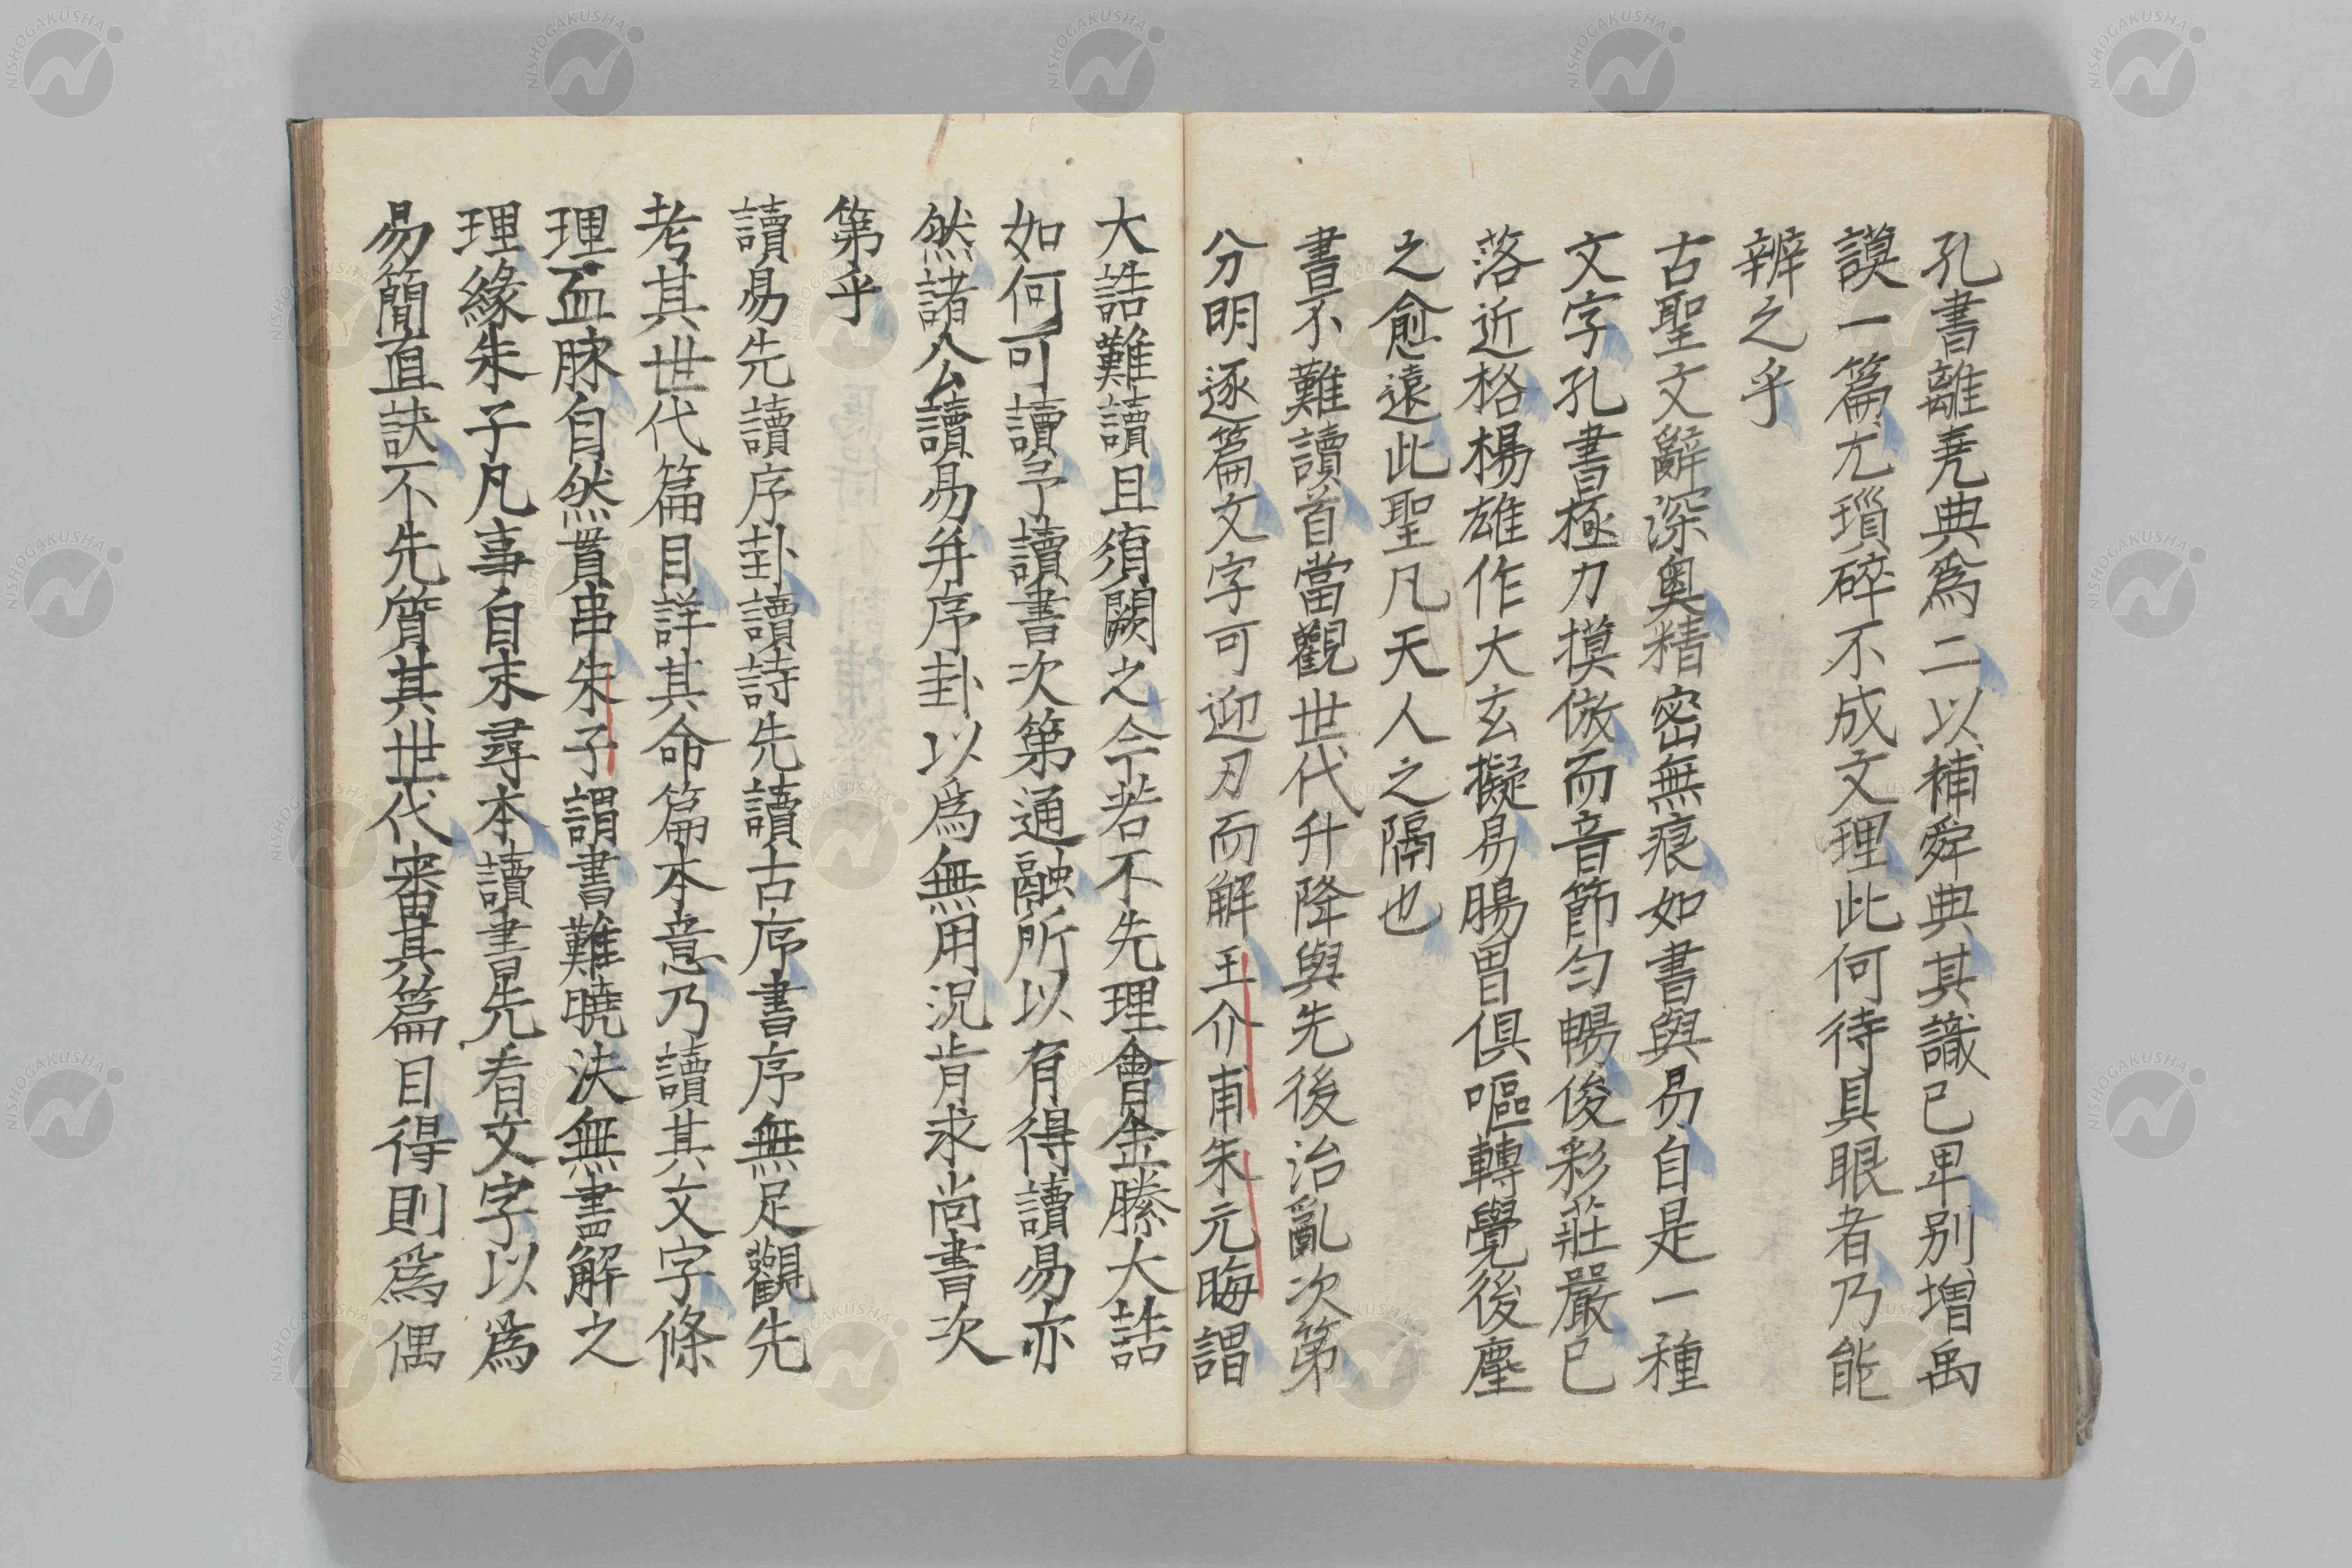 孔書離堯典爲二以補舜典其識已卑别増禹
謨一篇尤瑣碎不成文理此何待具眼者乃能
辨之乎
古聖文辭深奥精密無痕如書與易自是一種
文字孔書極力摸倣而音節匀暢俊彩莊嚴已
落近格楊雄作大玄擬易腸胃俱嘔轉覺後塵
之愈遠此聖凡天人之隔也
書不難讀首當觀世代升降與先後治亂次第
分明逐篇文字可迎刃而解王介甫朱元晦謂
大誥難讀且須闕之今若不先理會金縢大誥
如何可讀予讀書次第通融所以有得讀易亦
然諸公讀易并序卦以爲無用況肯求尚書次
第乎
讀易先讀序卦讀詩先讀古序書序無足觀先
考其世代篇目詳其命篇本意乃讀其文字條
理血脉自然貫串朱子謂書難曉決無盡解之
理緣朱子凡事自末尋本讀書先看文字以爲
易簡直訣不先質其世代審其篇目得則爲偶
NISHOGAKUSHA